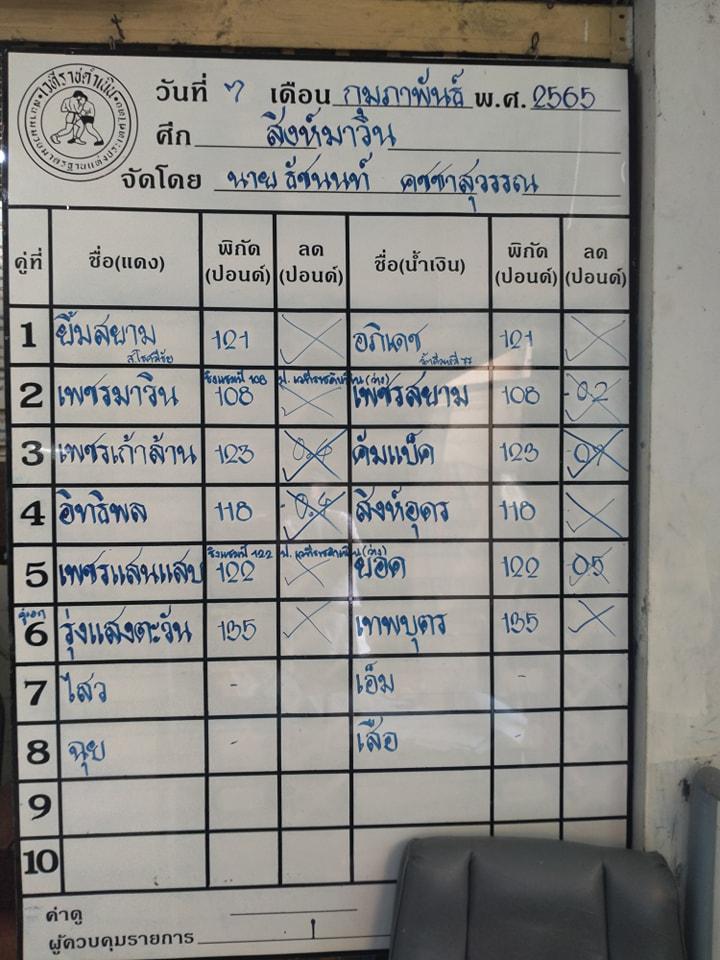 เวทีราชดำเนิน
วันที่ 7 เดือน กุมภาพันธ์ พ.ศ. 2565
ศึก สิงห์มาวิน
จัดโดย นาย ธัชนนท์ คชชาสุวรรณ
คู่ที่ ชื่อ(แดง) พิกัด (ปอนด์) ลด (ปอนด์) ชื่อ(น้ำเงิน) พิกัด (ปอนด์) ลด (ปอนด์)
1 ยิ้มสยาม 121 อภิเดช 121
ส.โชคมีชัย
ชิงแชมป์ 108 ป. เวทีราชดำเนิน (ว่าง)
2 เพชรมาวิน 108 เพชรสยาม 108 0.2
3 เพชรเก้าล้าน 123 0.4 คัมแบ็ค 123
4 อิทธิพล 118 สิงห์อุดร 118
ชิงแชมป์ 122 ป. เวทีราชดำเนิน (ว่าง)
5 เพชรแสนแสบ 122 ยอด 122 0.5
คู่เอก
6 รุ่งแสงตะวัน 135 เทพบุตร 135
7 ไสว - เอ็ม -
8 ฉุย - เสือ
9
10
ค่าดู
ผู้ควบคุมรายการ